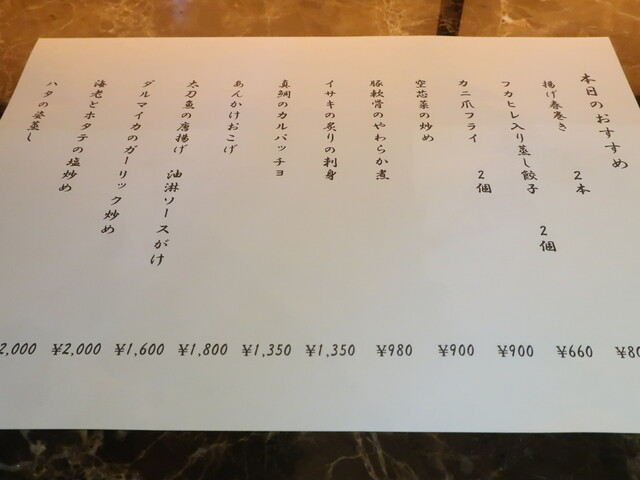 本日のおすすめ
揚げ春巻き 2本
フカヒレ入り蒸し餃子 2個
カニ爪フライ 2個
空芯菜の炒め
豚軟骨のやわらか煮
イサキの炙りの刺身
真鯛のカルパッチョ
あんかけおこげ
太刀魚の唐揚げ 油淋ソースがけ
ダルマイカのガーリック炒め
海老とホタテの塩炒め
ハタの姿蒸し
¥660
¥900
¥900
¥980
¥1,350
¥1,350
¥1,800
¥1,600
¥2,000
2,000